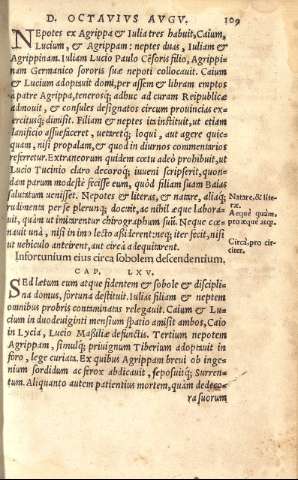 D. OCTAVIUS AUGV. 109
NEpotes ex Agrippa & Iulia tres habuit, Caium,
Lucium, & Agrippam: neptes duas, Iuliam &
Agrippinam. Iuliam Lucio Paulo Cẽsoris filio, Agrippi-
nam Germanico sororis suæ nepoti collocauit. Caium
& Lucium adoptauit domi, per assem & libram emptos
a patre Agrippa, tenerosq; adhuc ad curam Reipublicæ
admouit, & consules designatos circum prouincias ex-
ercitusq; dimisit. Filiam & neptes ita instituit, ut etiam
lanificio assuefaceret, uetaretq; loqui, aut agere quic-
quam, nisi propalam, & quod in diurnos commentarios
referretur. Extraneorum quidem cœtu adeò prohibuit, ut
Lucio Tucinio claro decoroq; iuueni scripserit, quon-
dam parum modestè fecisse eum, quòd filiam suam Baias
salutatum uenisset. Nepotes & literas, & natare, aliaq;
rudimenta per se plerunq; docuit, ac nihil æque labora-
uit, quàm ut imitarentur chirographum suũ. Neque cœ-
nauit unà, nisi in imo lecto assiderent: neq; iter fecit, nisi
ut uehiculo anteirent, aut circà adequitarent.
Natare, & lite-
ræ.
Aequè quàm,
pro æque atq;.
Circà, pro cir-
citer.
Infortunium eius circa sobolem descendentium.
CAP. LXV.
SEd lætum eum atque fidentem & sobole & discipli-
na domus, fortuna destituit. Iulias filiam & neptem
omnibus probris contaminatas relegauit. Caium & Lu-
cium in duodeuiginti mensium spatio amisit ambos, Caio
in Lycia, Lucio Massiliæ defunctis. Tertium nepotem
Agrippam, simulq; priuignum Tiberium adoptauit in
foro, lege curiata. Ex quibus Agrippam breui ob inge-
nium sordidum ac ferox abdicauit, seposuitq; Surren-
tum. Aliquanto autem patientius mortem, quàm dedeco-
ra suorum